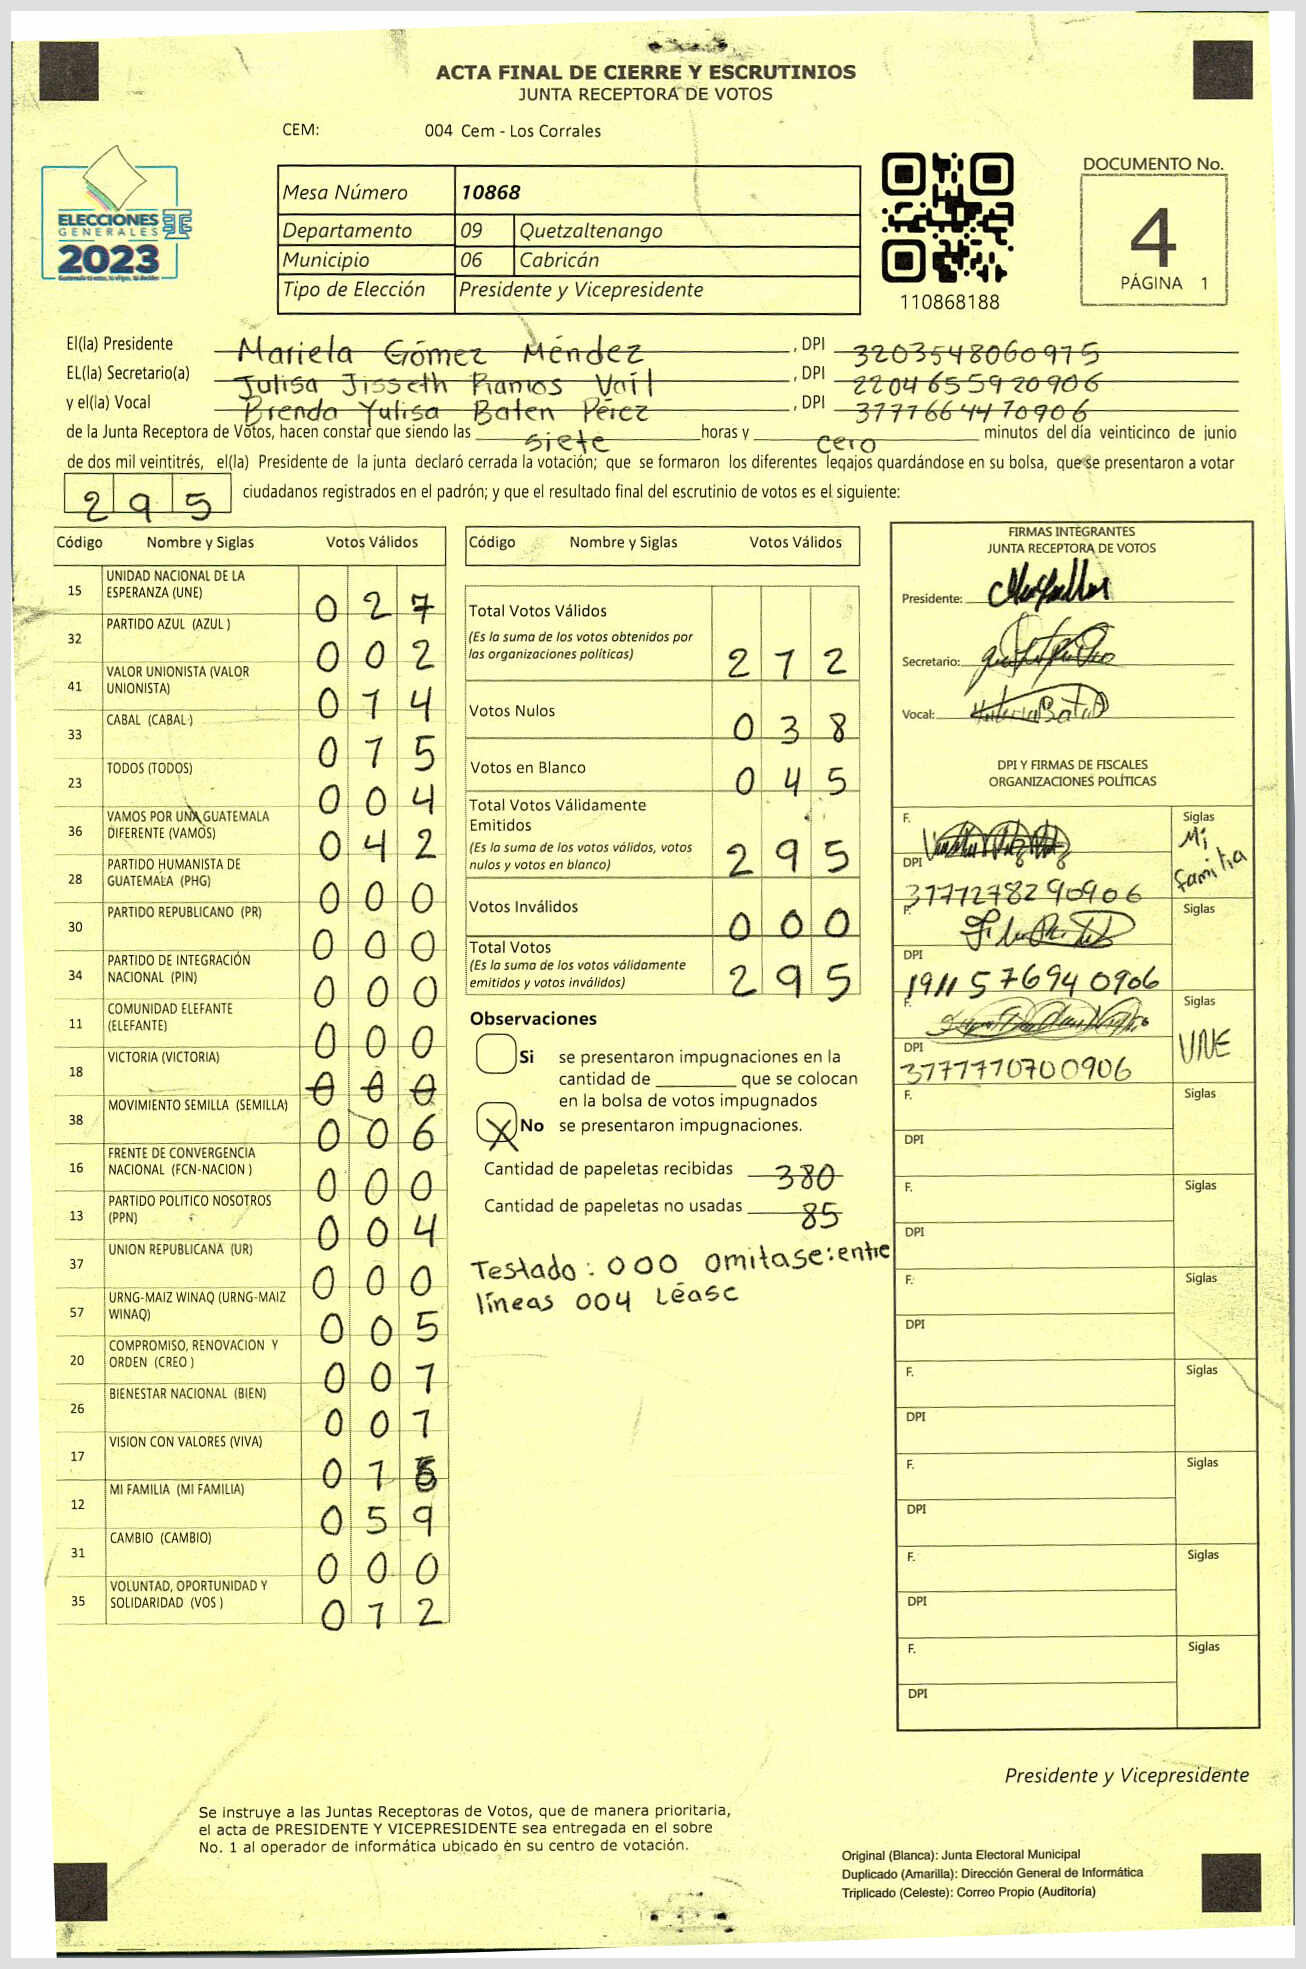 ACTA FINAL DE CIERRE Y ESCRUTINIOS
JUNTA RECEPTORA DE VOTOS
CEM: 004 Cem - Los Corrales
ELECCIONES
GENERALES
2023
Mesa Número 10868
Departamento 09 Quetzaltenango
Municipio 06 Cabricán
Tipo de Elección Presidente y Vicepresidente
110868188
DOCUMENTO No.
4
PÁGINA 1
El(la) Presidente Mariela Gómez Méndez, DPI 3203548060915
EL(la) Secretario(a) Julisa Jisseth Ramos Vail, DPI 2204655920906
y el(la) Vocal Brenda Yulisa Baten Pérez, DPI 3777664470906
de la Junta Receptora de Votos, hacen constar que siendo las siete horas y cero minutos del día veinticinco de junio
de dos mil veintitrés, el(la) Presidente de la junta declaró cerrada la votación; que se formaron los diferentes legajos guardándose en su bolsa, que se presentaron a votar
295 ciudadanos registrados en el padrón; y que el resultado final del escrutinio de votos es el siguiente:
Código Nombre y Siglas Votos Válidos
15 UNIDAD NACIONAL DE LA
ESPERANZA (UNE) 027
32 PARTIDO AZUL (AZUL ) 002
41 VALOR UNIONISTA (VALOR
UNIONISTA) 014
33 CABAL (CABAL ) 015
23 TODOS (TODOS) 004
36 VAMOS POR UNA GUATEMALA
DIFERENTE (VAMOS) 042
28 PARTIDO HUMANISTA DE
GUATEMALA (PHG) 000
30 PARTIDO REPUBLICANO (PR) 000
34 PARTIDO DE INTEGRACIÓN
NACIONAL (PIN) 000
11 COMUNIDAD ELEFANTE
(ELEFANTE) 000
18 VICTORIA (VICTORIA) 000
38 MOVIMIENTO SEMILLA (SEMILLA) 006
16 FRENTE DE CONVERGENCIA
NACIONAL (FCN-NACION ) 000
13 PARTIDO POLITICO NOSOTROS
(PPN) 004
37 UNION REPUBLICANA (UR) 000
57 URNG-MAIZ WINAQ (URNG-MAIZ
WINAQ) 005
20 COMPROMISO, RENOVACION Y
ORDEN (CREO ) 001
26 BIENESTAR NACIONAL (BIEN) 001
17 VISION CON VALORES (VIVA) 016
12 MI FAMILIA (MI FAMILIA) 059
31 CAMBIO (CAMBIO) 000
35 VOLUNTAD, OPORTUNIDAD Y
SOLIDARIDAD (VOS ) 012
Código Nombre y Siglas Votos Válidos
Total Votos Válidos
(Es la suma de los votos obtenidos por
las organizaciones políticas) 212
Votos Nulos 038
Votos en Blanco 045
Total Votos Válidamente
Emitidos
(Es la suma de los votos válidos, votos
nulos y votos en blanco) 295
Votos Inválidos 000
Total Votos
(Es la suma de los votos válidamente
emitidos y votos inválidos) 295
Observaciones
Si se presentaron impugnaciones en la
cantidad de ________ que se colocan
en la bolsa de votos impugnados
X No se presentaron impugnaciones.
Cantidad de papeletas recibidas 380
Cantidad de papeletas no usadas 85
Testado: 000 omitase: entre
líneas 004 Léase
FIRMAS INTEGRANTES
JUNTA RECEPTORA DE VOTOS
Presidente:
Secretario:
Vocal:
DPI Y FIRMAS DE FISCALES
ORGANIZACIONES POLÍTICAS
F. Siglas
Mi
familia
DPI
3771278290906
F. Siglas
DPI
1911576940906
F. Siglas
UNE
DPI
3777770700906
F. Siglas
DPI
F. Siglas
DPI
F. Siglas
DPI
F. Siglas
DPI
F. Siglas
DPI
F. Siglas
DPI
F. Siglas
DPI
Presidente y Vicepresidente
Se instruye a las Juntas Receptoras de Votos, que de manera prioritaria,
el acta de PRESIDENTE Y VICEPRESIDENTE sea entregada en el sobre
No. 1 al operador de informática ubicado en su centro de votación.
Original (Blanca): Junta Electoral Municipal
Duplicado (Amarilla): Dirección General de Informática
Triplicado (Celeste): Correo Propio (Auditoría)